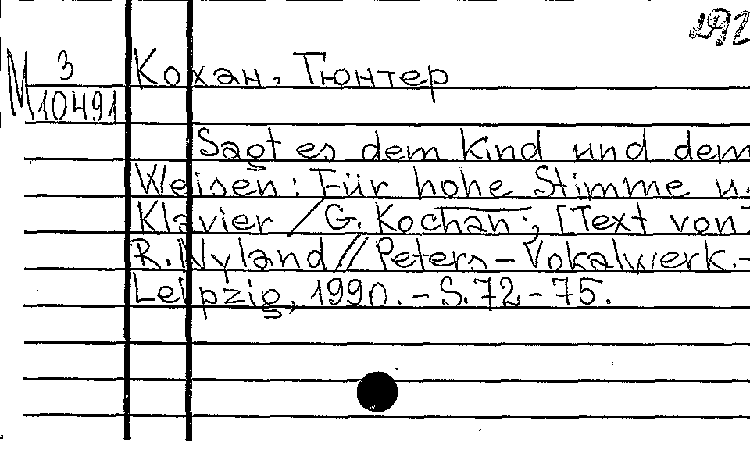 292
М 3 Кохан, Гюнтер
10491
Sagt es dem Kind und dem
Weisen: Für hohe Stimme u.
Klavier / G. Kochan; [Text von]
R. Nyland // Peters-Vokalwerk.-
Leipzig, 1990. - S. 72-75.